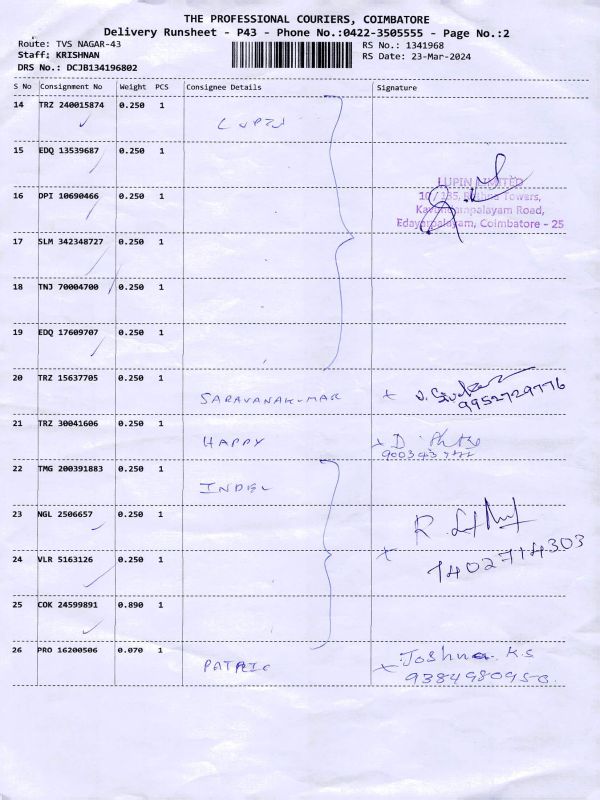 THE PROFESSIONAL COURIERS, COIMBATORE
Delivery Runsheet - P43 - Phone No.:0422-3505555 - Page No.:2
Route: TVS NAGAR-43 RS No.: 1341968
Staff: KRISHNAN RS Date: 23-Mar-2024
DRS No.: DCJB134196802
S No Consignment No Weight PCS Consignee Details Signature
14 TRZ 240015874 0.250 1
LUPIN
15 EDQ 13539687 0.250 1
LUPIN LIMITED
16 DPI 10690466 0.250 1
Towers,
Road,
Edayarpalayam, Coimbatore - 25
17 SLM 342348727 0.250 1
18 TNJ 70004700 0.250 1
19 EDQ 17609707 0.250 1
20 TRZ 15637705 0.250 1
SARAVANAKUMAR
9952729776
21 TRZ 30041606 0.250 1
HAPPY
22 TMG 200391883 0.250 1
INDEL
23 NGL 2506657 0.250 1
24 VLR 5163126 0.250 1
7402714303
25 COK 24599891 0.890 1
26 PRO 16200506 0.070 1
PATRIC Joshua. K.S
9384980950.